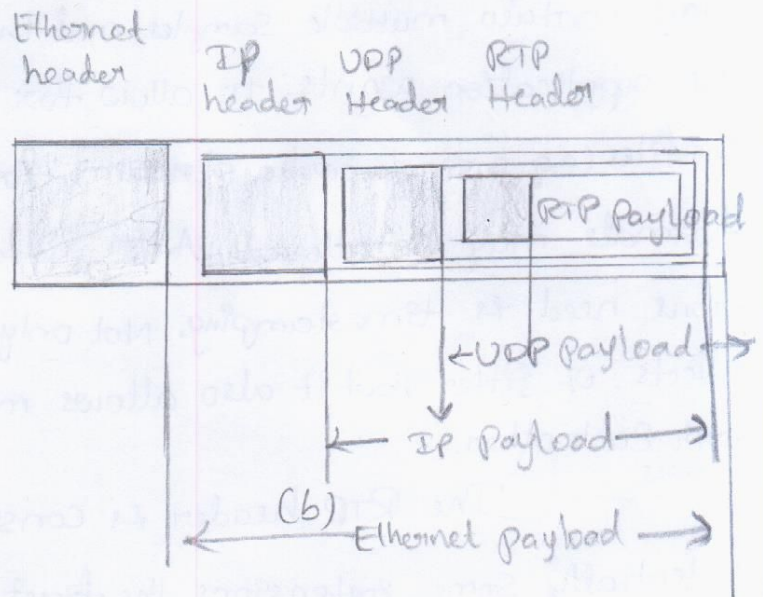 Ethernet
header
IP
header
UDP
Header
RTP
Header
RTP payload
UDP payload
IP payload
(b)
Ethernet payload